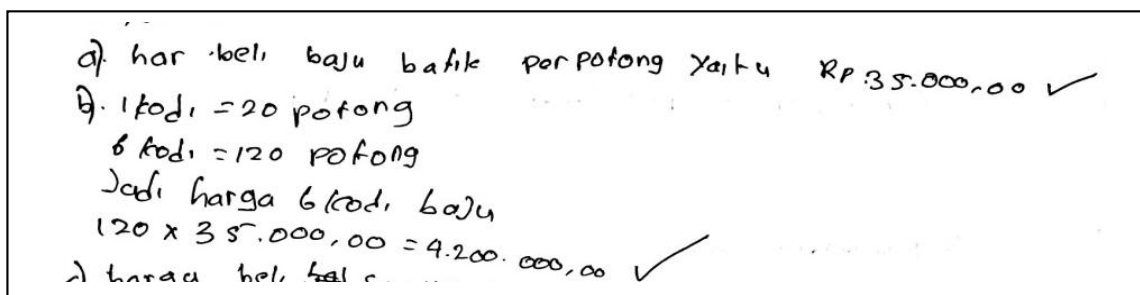 a). har beli baju batik perpotong yaitu Rp.35.000,00 ✓
b). 1 kodi = 20 potong
6 kodi = 120 potong
Jadi harga 6 kodi baju
120 x 35.000,00 = 4.200.000,00 ✓
c) harga beli